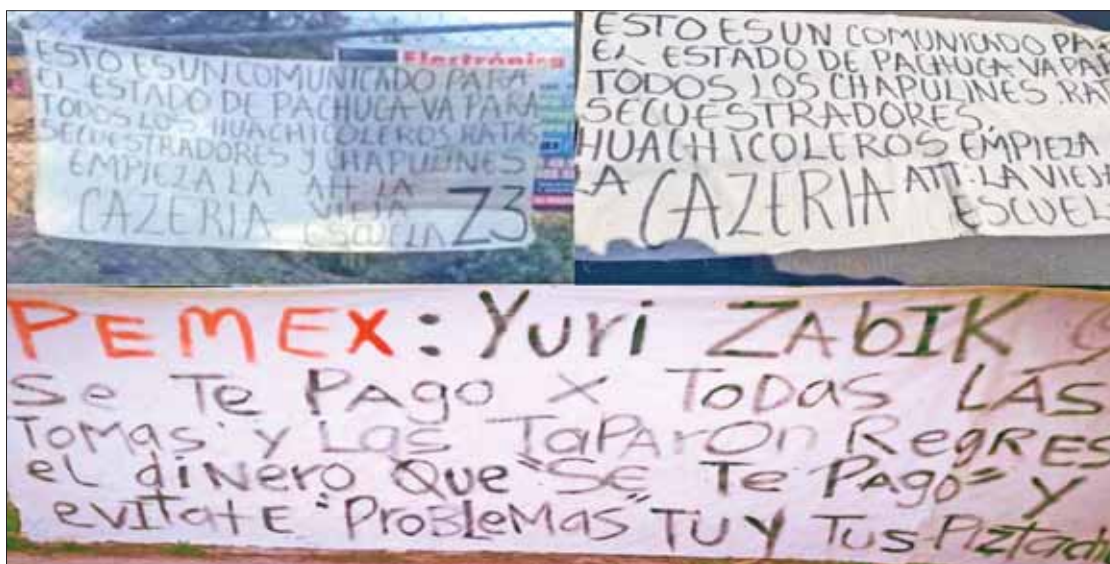 ESTO ES UN COMUNICADO PARA
EL ESTADO DE PACHUCA VA PARA
TODOS LOS HUACHICOLEROS RATAS
SECUESTRADORES Y CHAPULINES
EMPIEZA LA ATT. LA
CAZERIA VIEJA
ESCUELA Z3
Electrónica
ESTO ES UN COMUNICADO PA
EL ESTADO DE PACHUCA VA PAR
TODOS LOS CHAPULINES. RAT
SECUESTRADORES.
HUACHICOLEROS EMPIEZA
LA CAZERIA ATT. LA VIEJ
ESCUEL
PEMEX: Yuri ZAbIK
Se Te PAgo X ToDas LAS
ToMas y Las TaPArOn RegRES
eL diNero Que "SE Te PAgo" Y
evitatE "ProBLeMas" TU Y Tus Piztad